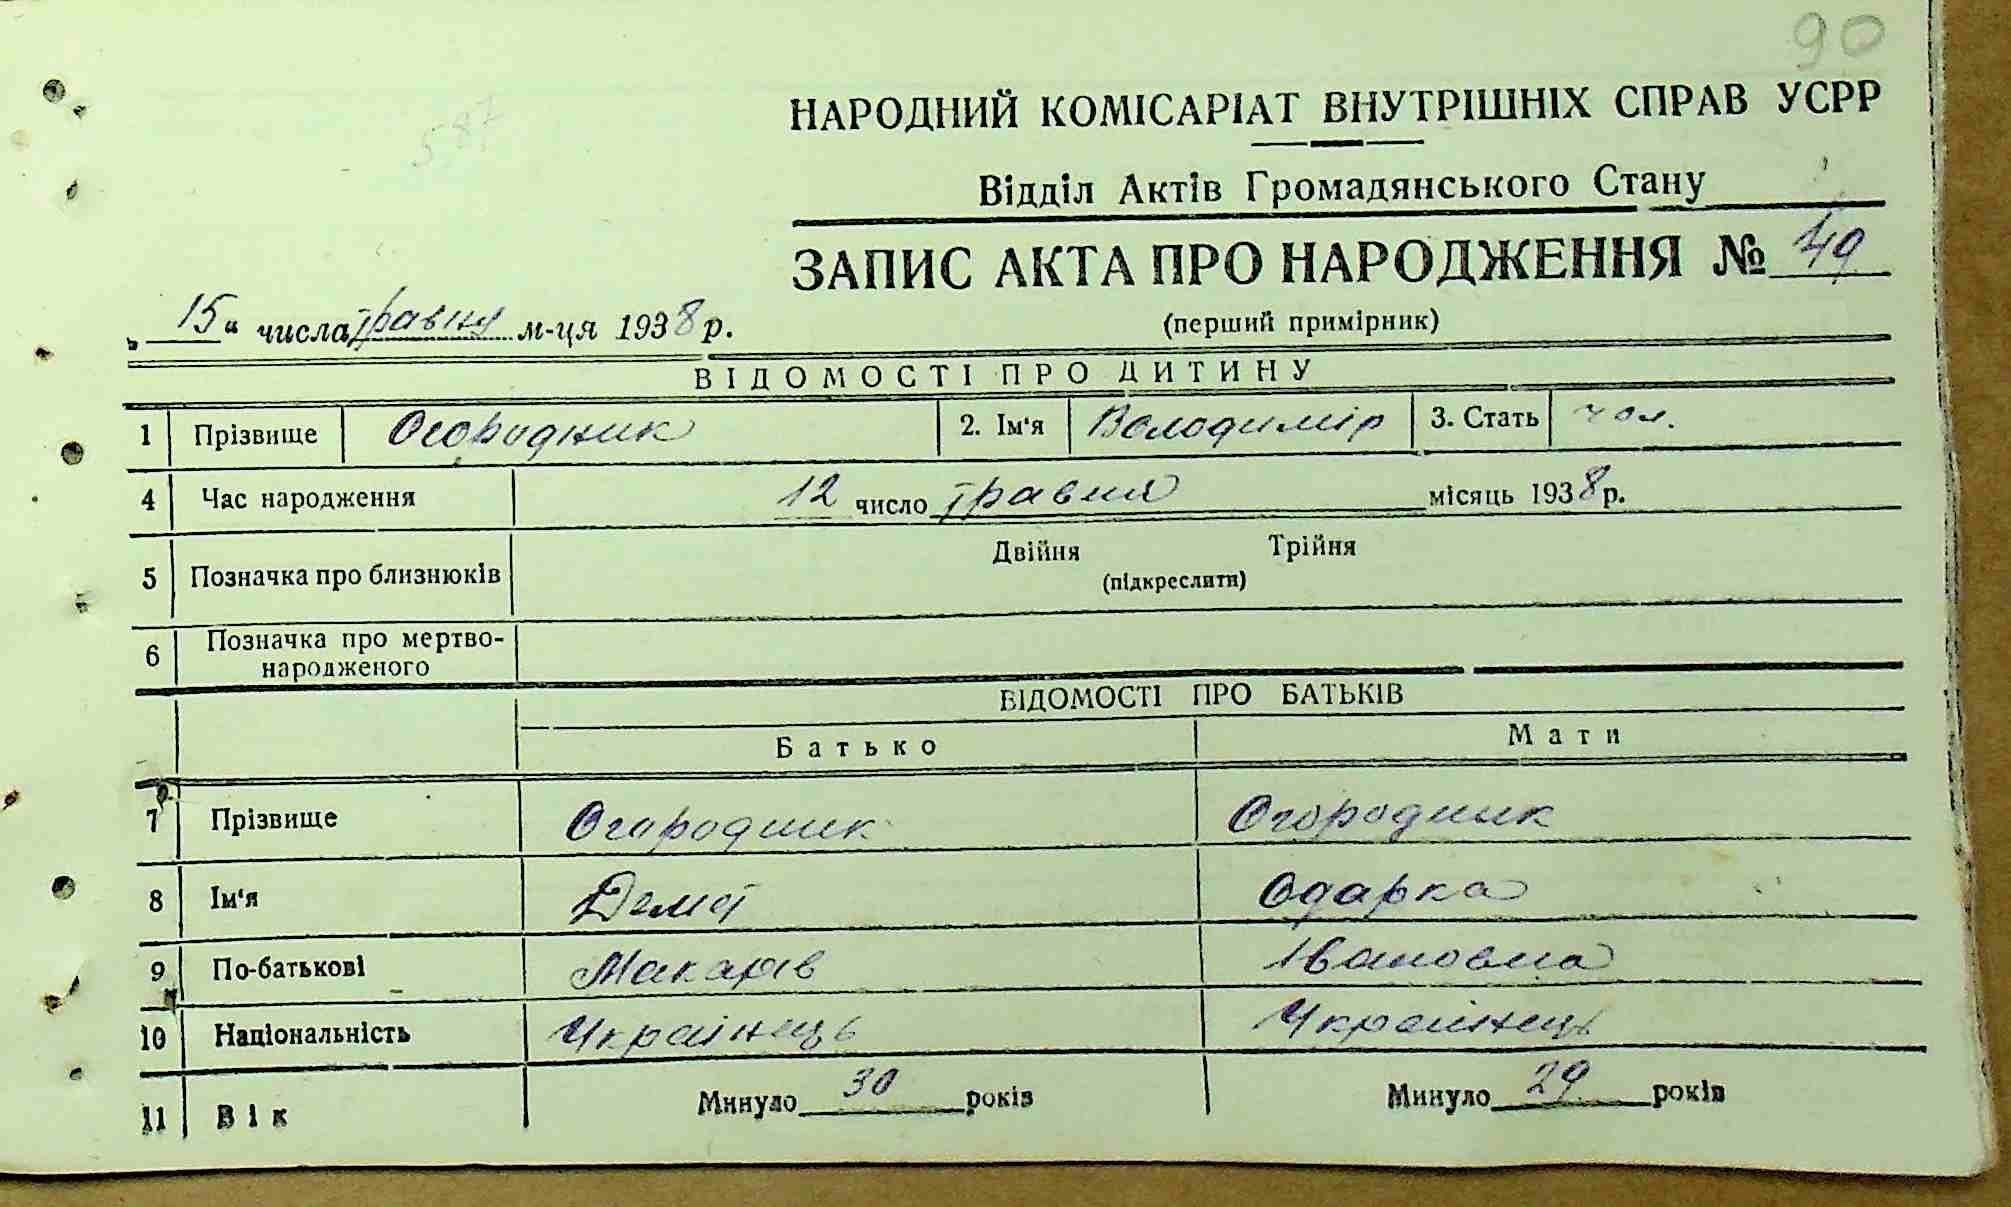 90
587
НАРОДНИЙ КОМІСАРІАТ ВНУТРІШНІХ СПРАВ УСРР
Відділ Актів Громадянського Стану
ЗАПИС АКТА ПРО НАРОДЖЕННЯ № 49
„15“ числа травня м-ця 1938 р.
(перший примірник)
ВІДОМОСТІ ПРО ДИТИНУ
1 Прізвище Огородник 2. Ім'я Володимір 3. Стать чол.
4 Час народження 12 число травня місяць 1938 р.
5 Позначка про близнюків Двійня Трійня
(підкреслити)
6 Позначка про мертво-
народженого
ВІДОМОСТІ ПРО БАТЬКІВ
Батько Мати
7 Прізвище Огородник Огородник
8 Ім'я Одарка
9 По-батькові Макарів Івановна
10 Національність Українець Українець
11 Вік Минуло 30 років Минуло 29 років